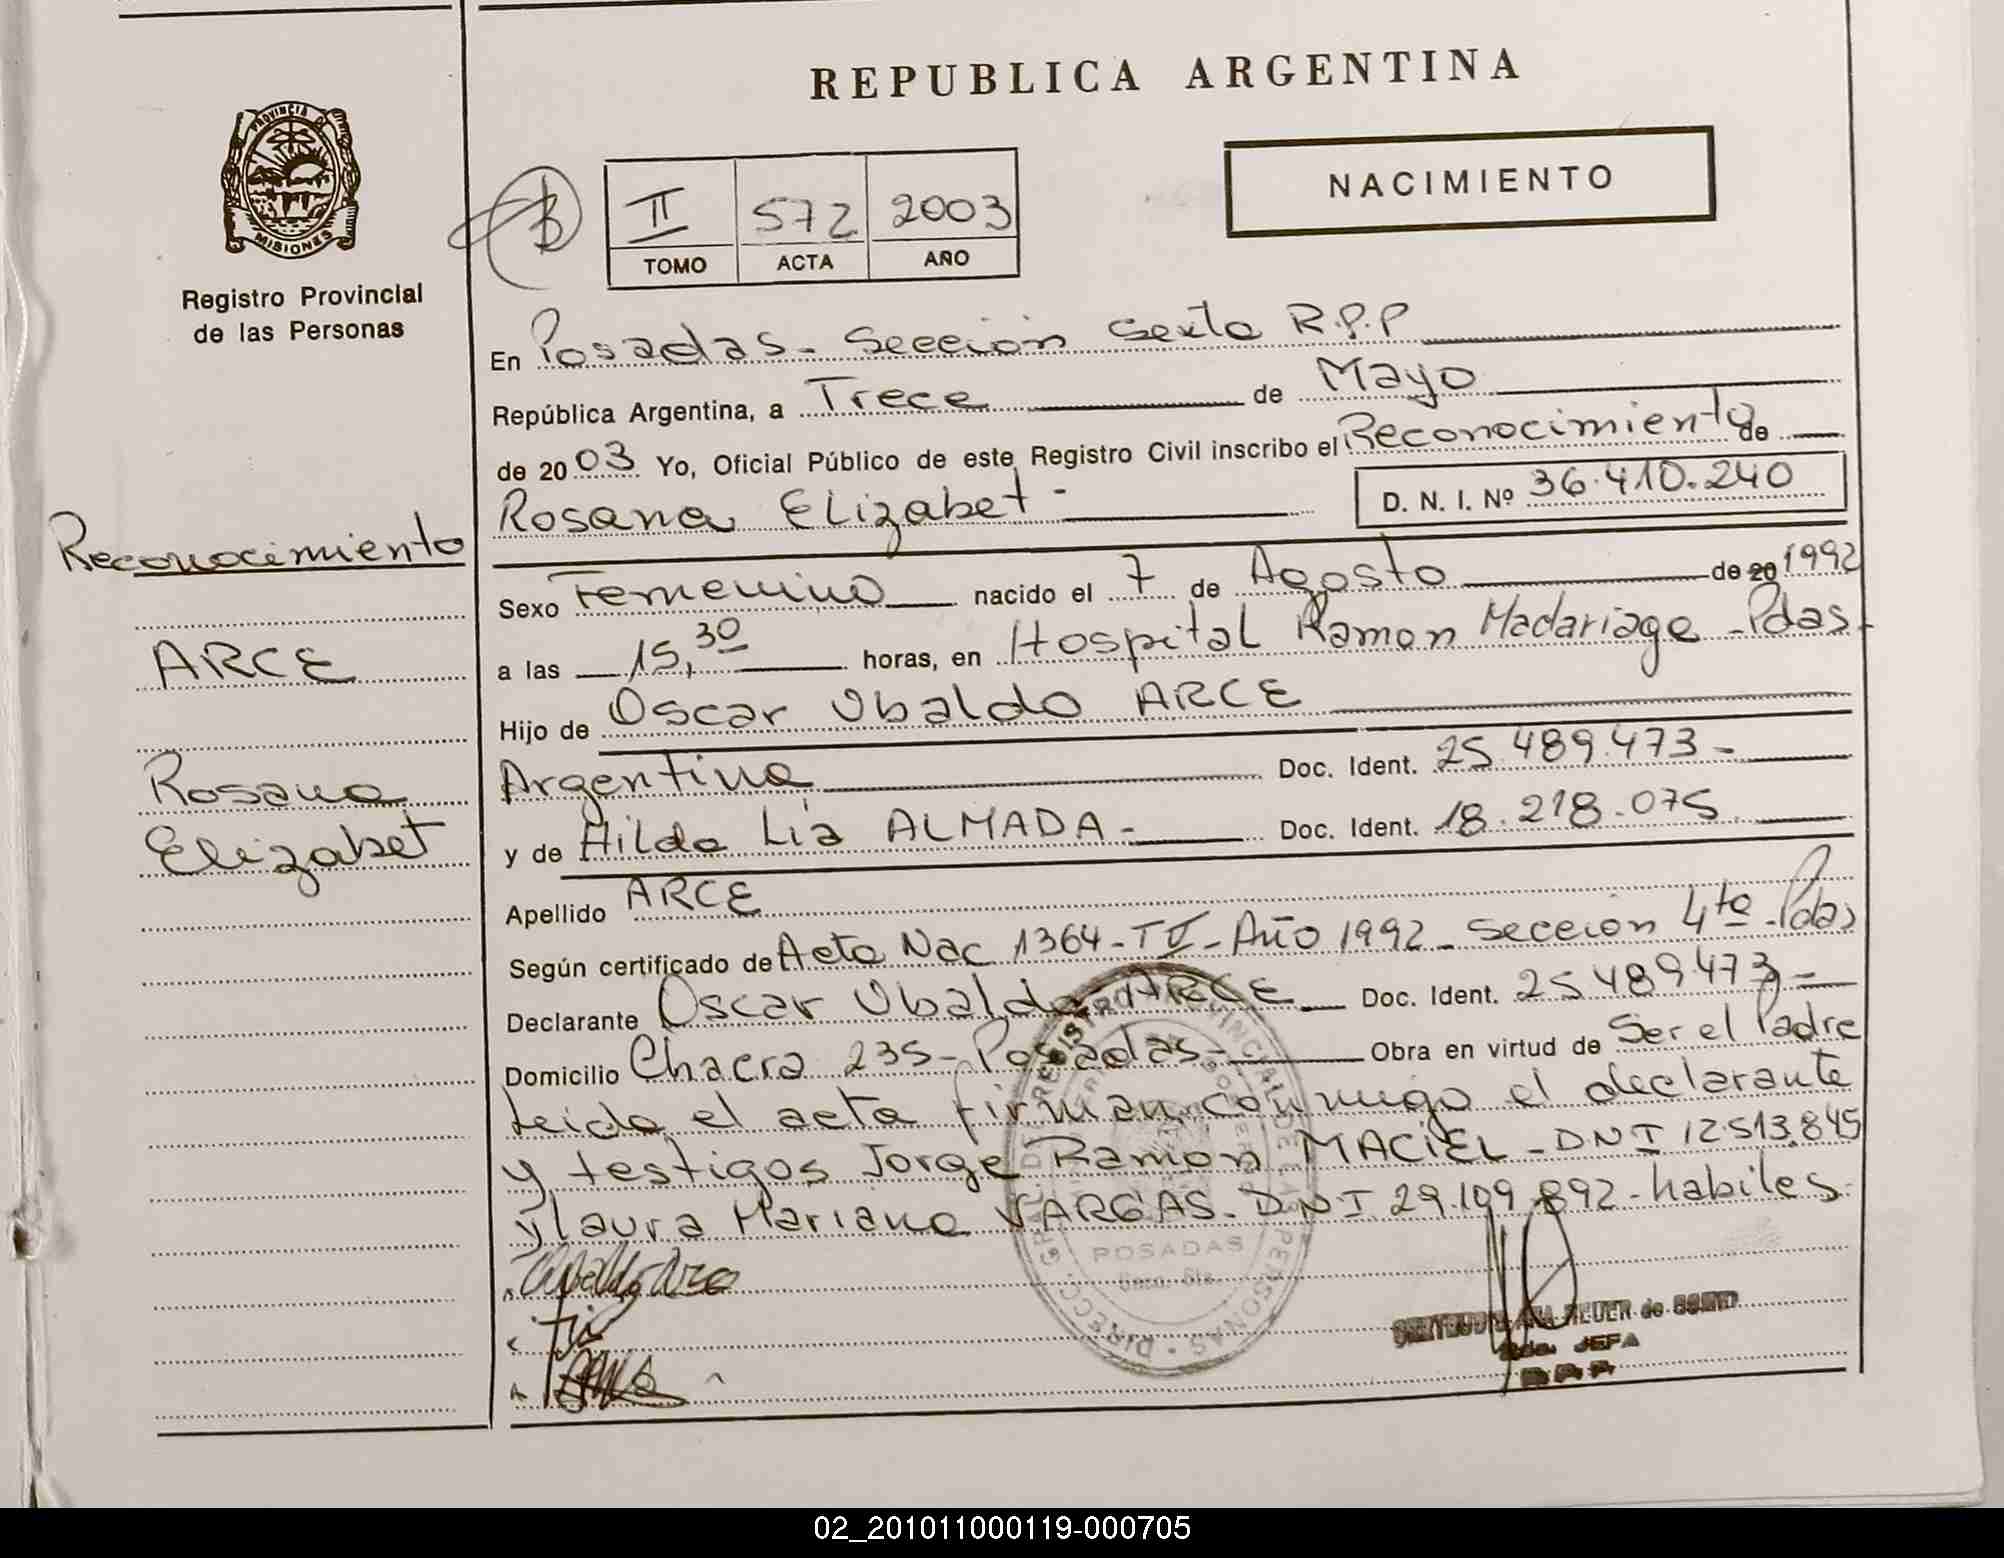 REPUBLICA ARGENTINA
PROVINCIA DE
MISIONES
Registro Provincial
de las Personas
II 572 2003
TOMO ACTA AÑO
NACIMIENTO
En Posadas - Sección Sexta R.P.P
República Argentina, a Trece de Mayo
de 2003 Yo, Oficial Público de este Registro Civil inscribo el Reconocimiento de
Rosana Elizabet - D. N. I. Nº 36.410.240
Reconocimiento
ARCE
Rosana
Elizabet
Sexo Femenino nacido el 7 de Agosto de 20 1992
a las 15,30 horas, en Hospital Ramon Madariaga - Pdas.
Hijo de Oscar Ubaldo ARCE
Argentina Doc. Ident. 25.489.473 -
y de Hilda Lia ALMADA - Doc. Ident. 18.218.075
Apellido ARCE
Según certificado de Acta Nac 1364 - T V - Año 1992 - Sección 4ta - Pdas
Declarante Oscar Ubaldo ARCE Doc. Ident. 25489.473 -
Domicilio Chacra 235 - Posadas - Obra en virtud de Ser el Padre
leida el acta firman conmigo el declarante
y testigos Jorge Ramon MACIEL - DNI 12.513.845
y laura Mariana VARGAS - DNI 29.109.892 - habiles
POSADAS
JEFA
R.P.P.
02_201011000119-000705